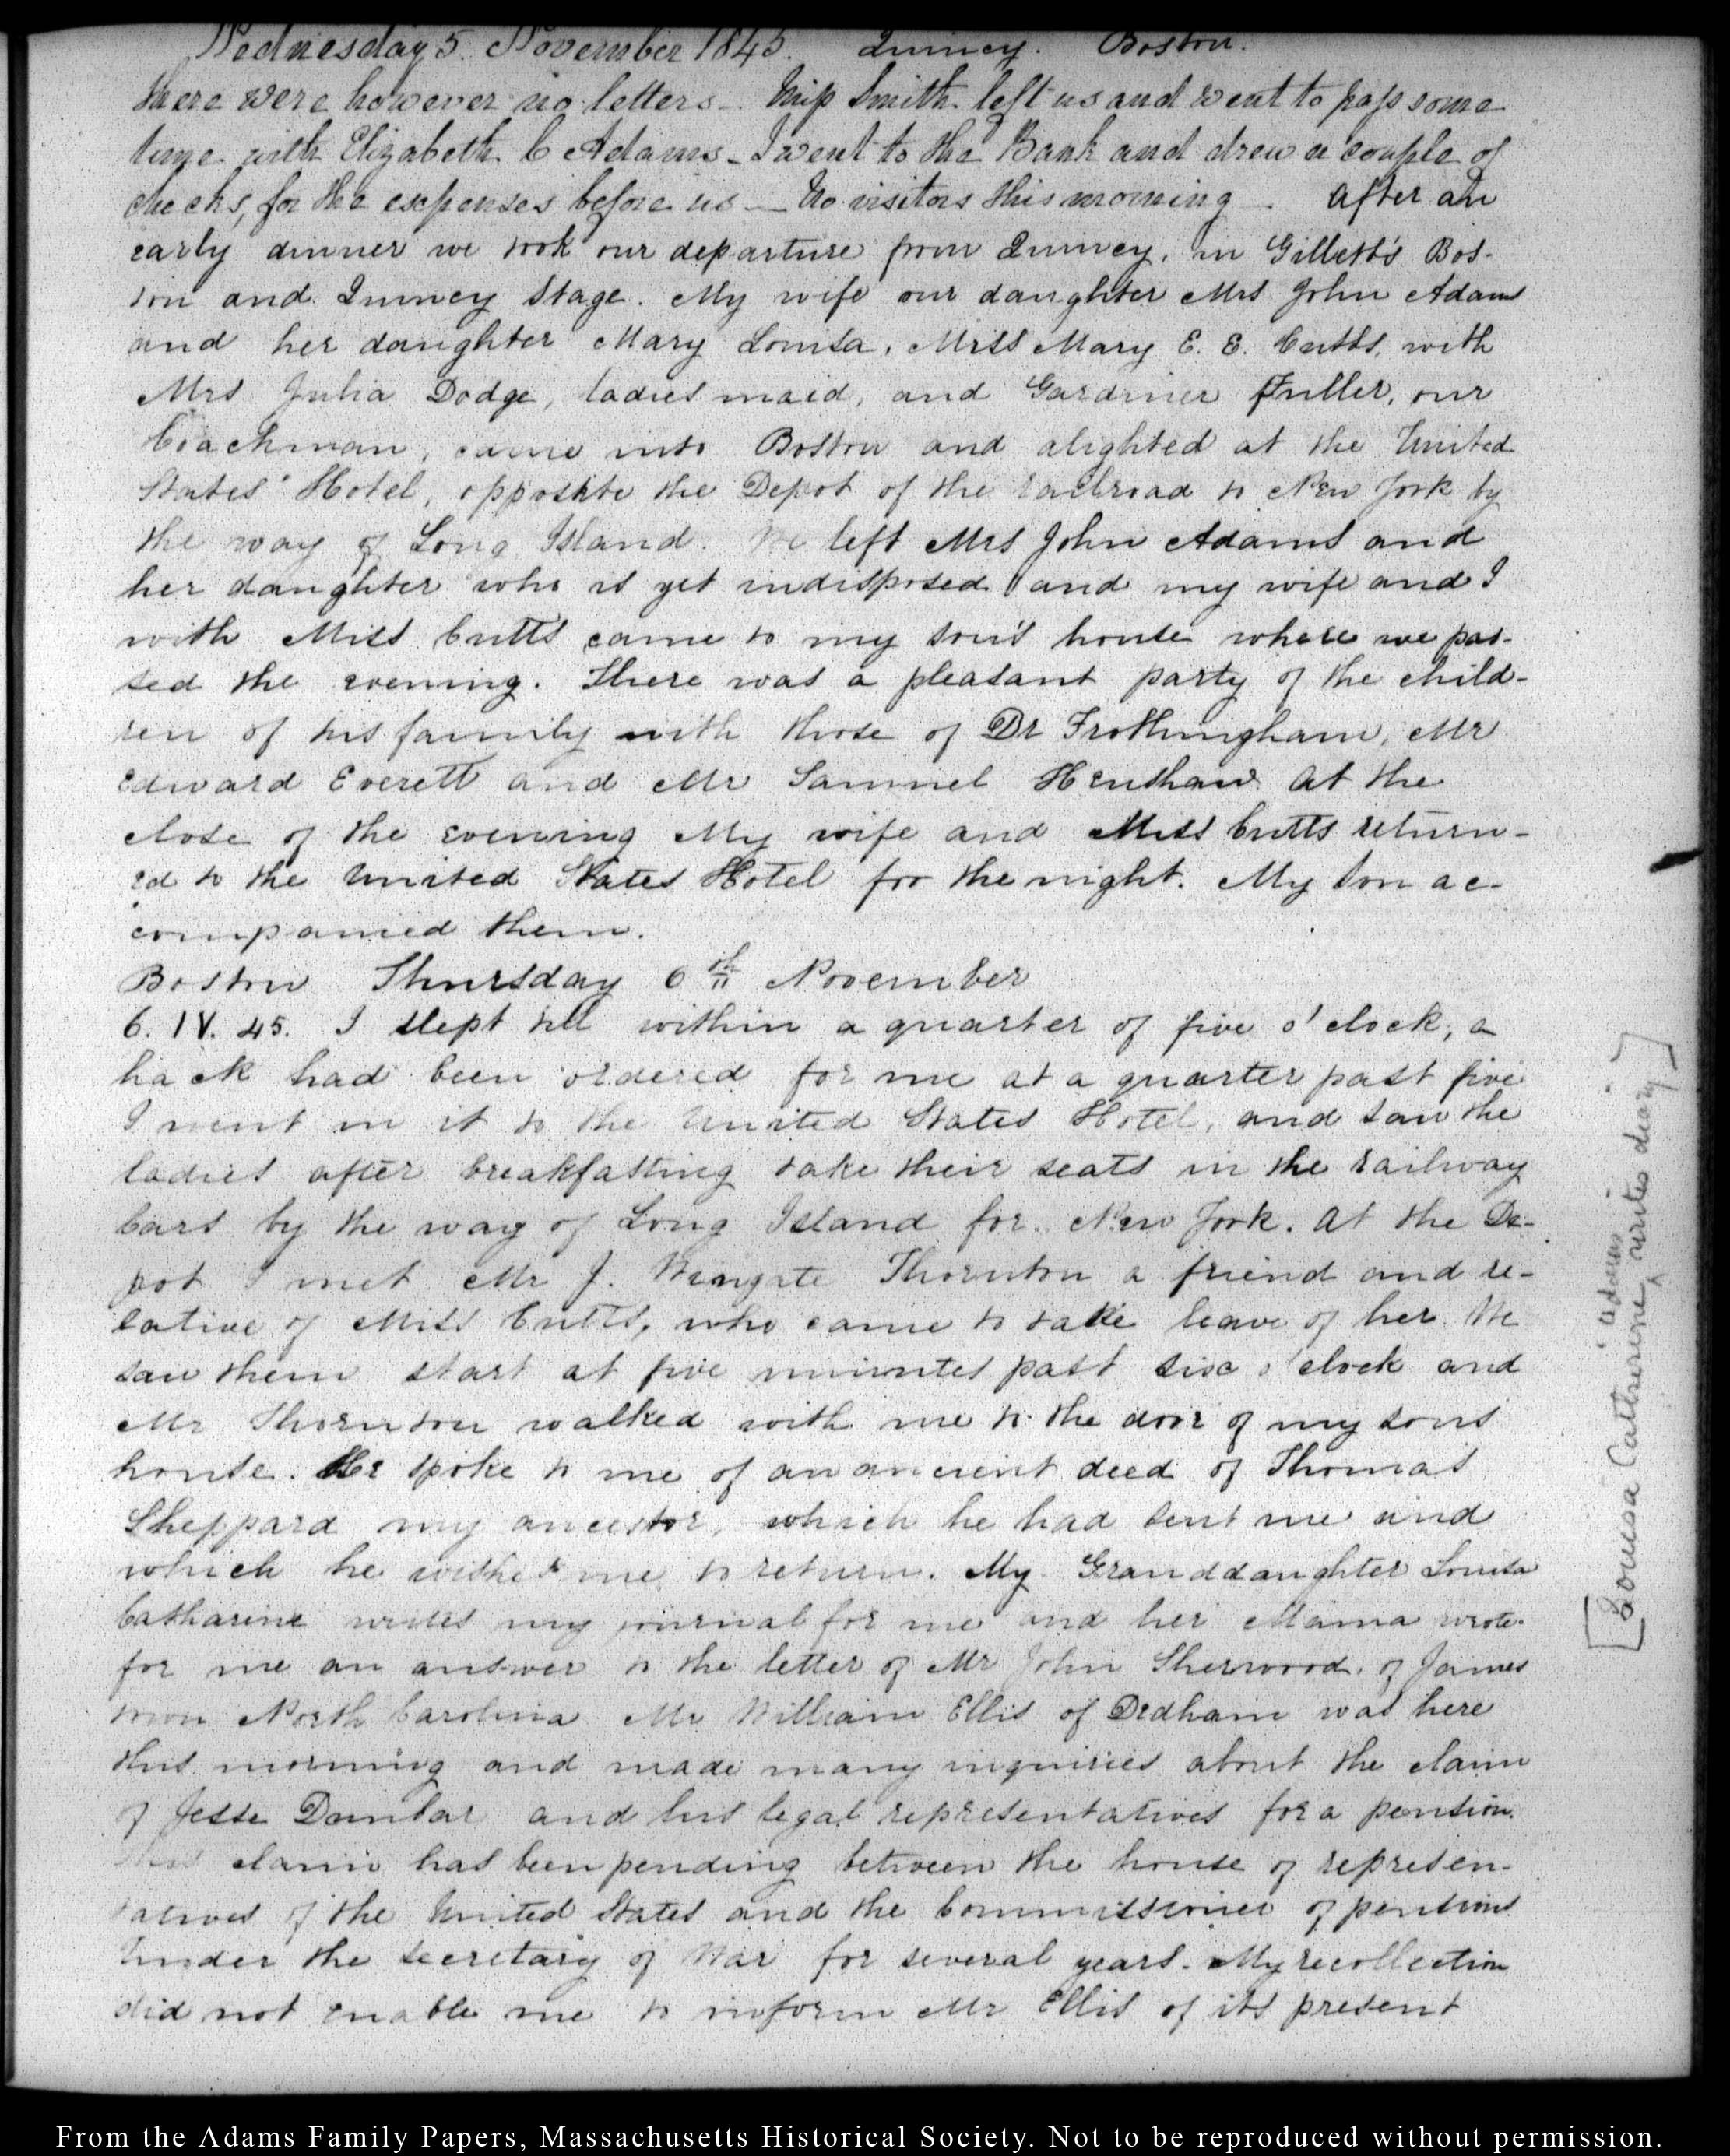 Wednesday 5. November 1845. Quincy. Boston.
there were however no letters — Miss Smith left us and went to pass some
time with Elizabeth C Adams — I went to the Bank and drew a couple of
checks, for the expenses before us — No visitors this morning — After an
early dinner we took our departure from Quincy, in Gillett's Bos-
ton and Quincy Stage. My wife our daughter Mrs John Adams
and her daughter Mary Louisa, Miss Mary E. E. Cutts, with
Mrs Julia Dodge, ladies maid, and Gardiner Fuller, our
Coachman, came into Boston and alighted at the United
States' Hotel, opposite the Depot of the railroad to New York by
the way of Long Island. We left Mrs John Adams and
her daughter who is yet indisposed and my wife and I
with Miss Cutts came to my son's house where we pas-
sed the evening. There was a pleasant party of the child-
ren of his family with those of Dr Frothingham, Mr
Edward Everett and Mr Samuel Henshaw At the
close of the evening My wife and Miss Cutts return-
ed to the United States Hotel for the night. My son ac-
companied them.
Boston Thursday 6th November
6. IV. 45. I slept till within a quarter of five o'clock, a
hack had been ordered for me at a quarter past five
I went in it to the United States Hotel, and saw the
ladies after breakfasting take their seats in the railway
Cars by the way of Long Island for New York. At the De-
pot I met Mr J. Wingate Thornton a friend and re-
lative of Miss Cutts, who came to take leave of her. We
saw them start at five minutes past six o'clock and
Mr Thornton walked with me to the door of my sons
house. He spoke to me of an ancient deed of Thomas
Sheppard my ancestor, which he had sent me and
which he wished me to return. My Granddaughter Louisa
Catharine writes my journal for me and her Mama wrote
for me an answer to the letter of Mr John Sherwood, of James
town North Carolina Mr William Ellis of Dedham was here
this morning and made many inquiries about the claim
of Jesse Dunbar and his legal representatives for a pension.
this claim has been pending between the house of represen-
tatives of the United States and the Commissioner of pensions
Under the Secretary of War for several years. My recollection
did not enable me to inform Mr Ellis of its present
[Louisa Catherine Adams writes diary]
From the Adams Family Papers, Massachusetts Historical Society. Not to be reproduced without permission.